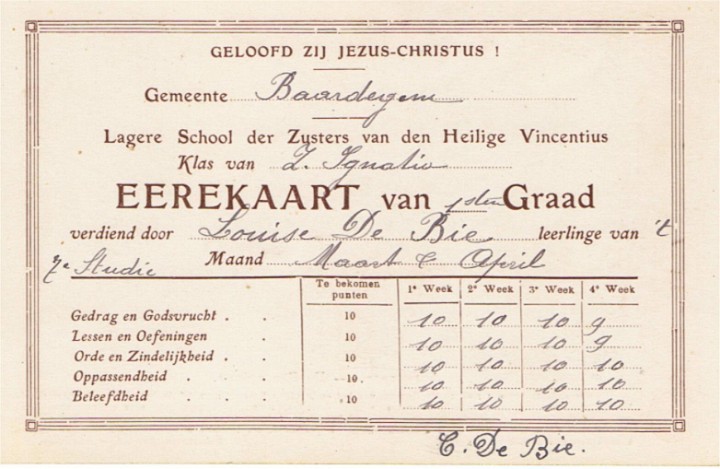 GELOOFD ZIJ JEZUS-CHRISTUS !
Gemeente Baardegem
Lagere School der Zusters van den Heilige Vincentius
Klas van Z. Ignatio
EEREKAART van 1sten Graad
verdiend door Louise De Bie leerlinge van 't
7e Studie Maand Maart & April
Te bekomen punten 1e Week 2e Week 3e Week 4e Week
Gedrag en Godsvrucht . . 10 10 10 10 9
Lessen en Oefeningen . 10 10 10 10 9
Orde en Zindelijkheid . . 10 10 10 10 10
Oppassendheid . . 10 10 10 10 10
Beleefdheid . . 10 10 10 10 10
C. De Bie.